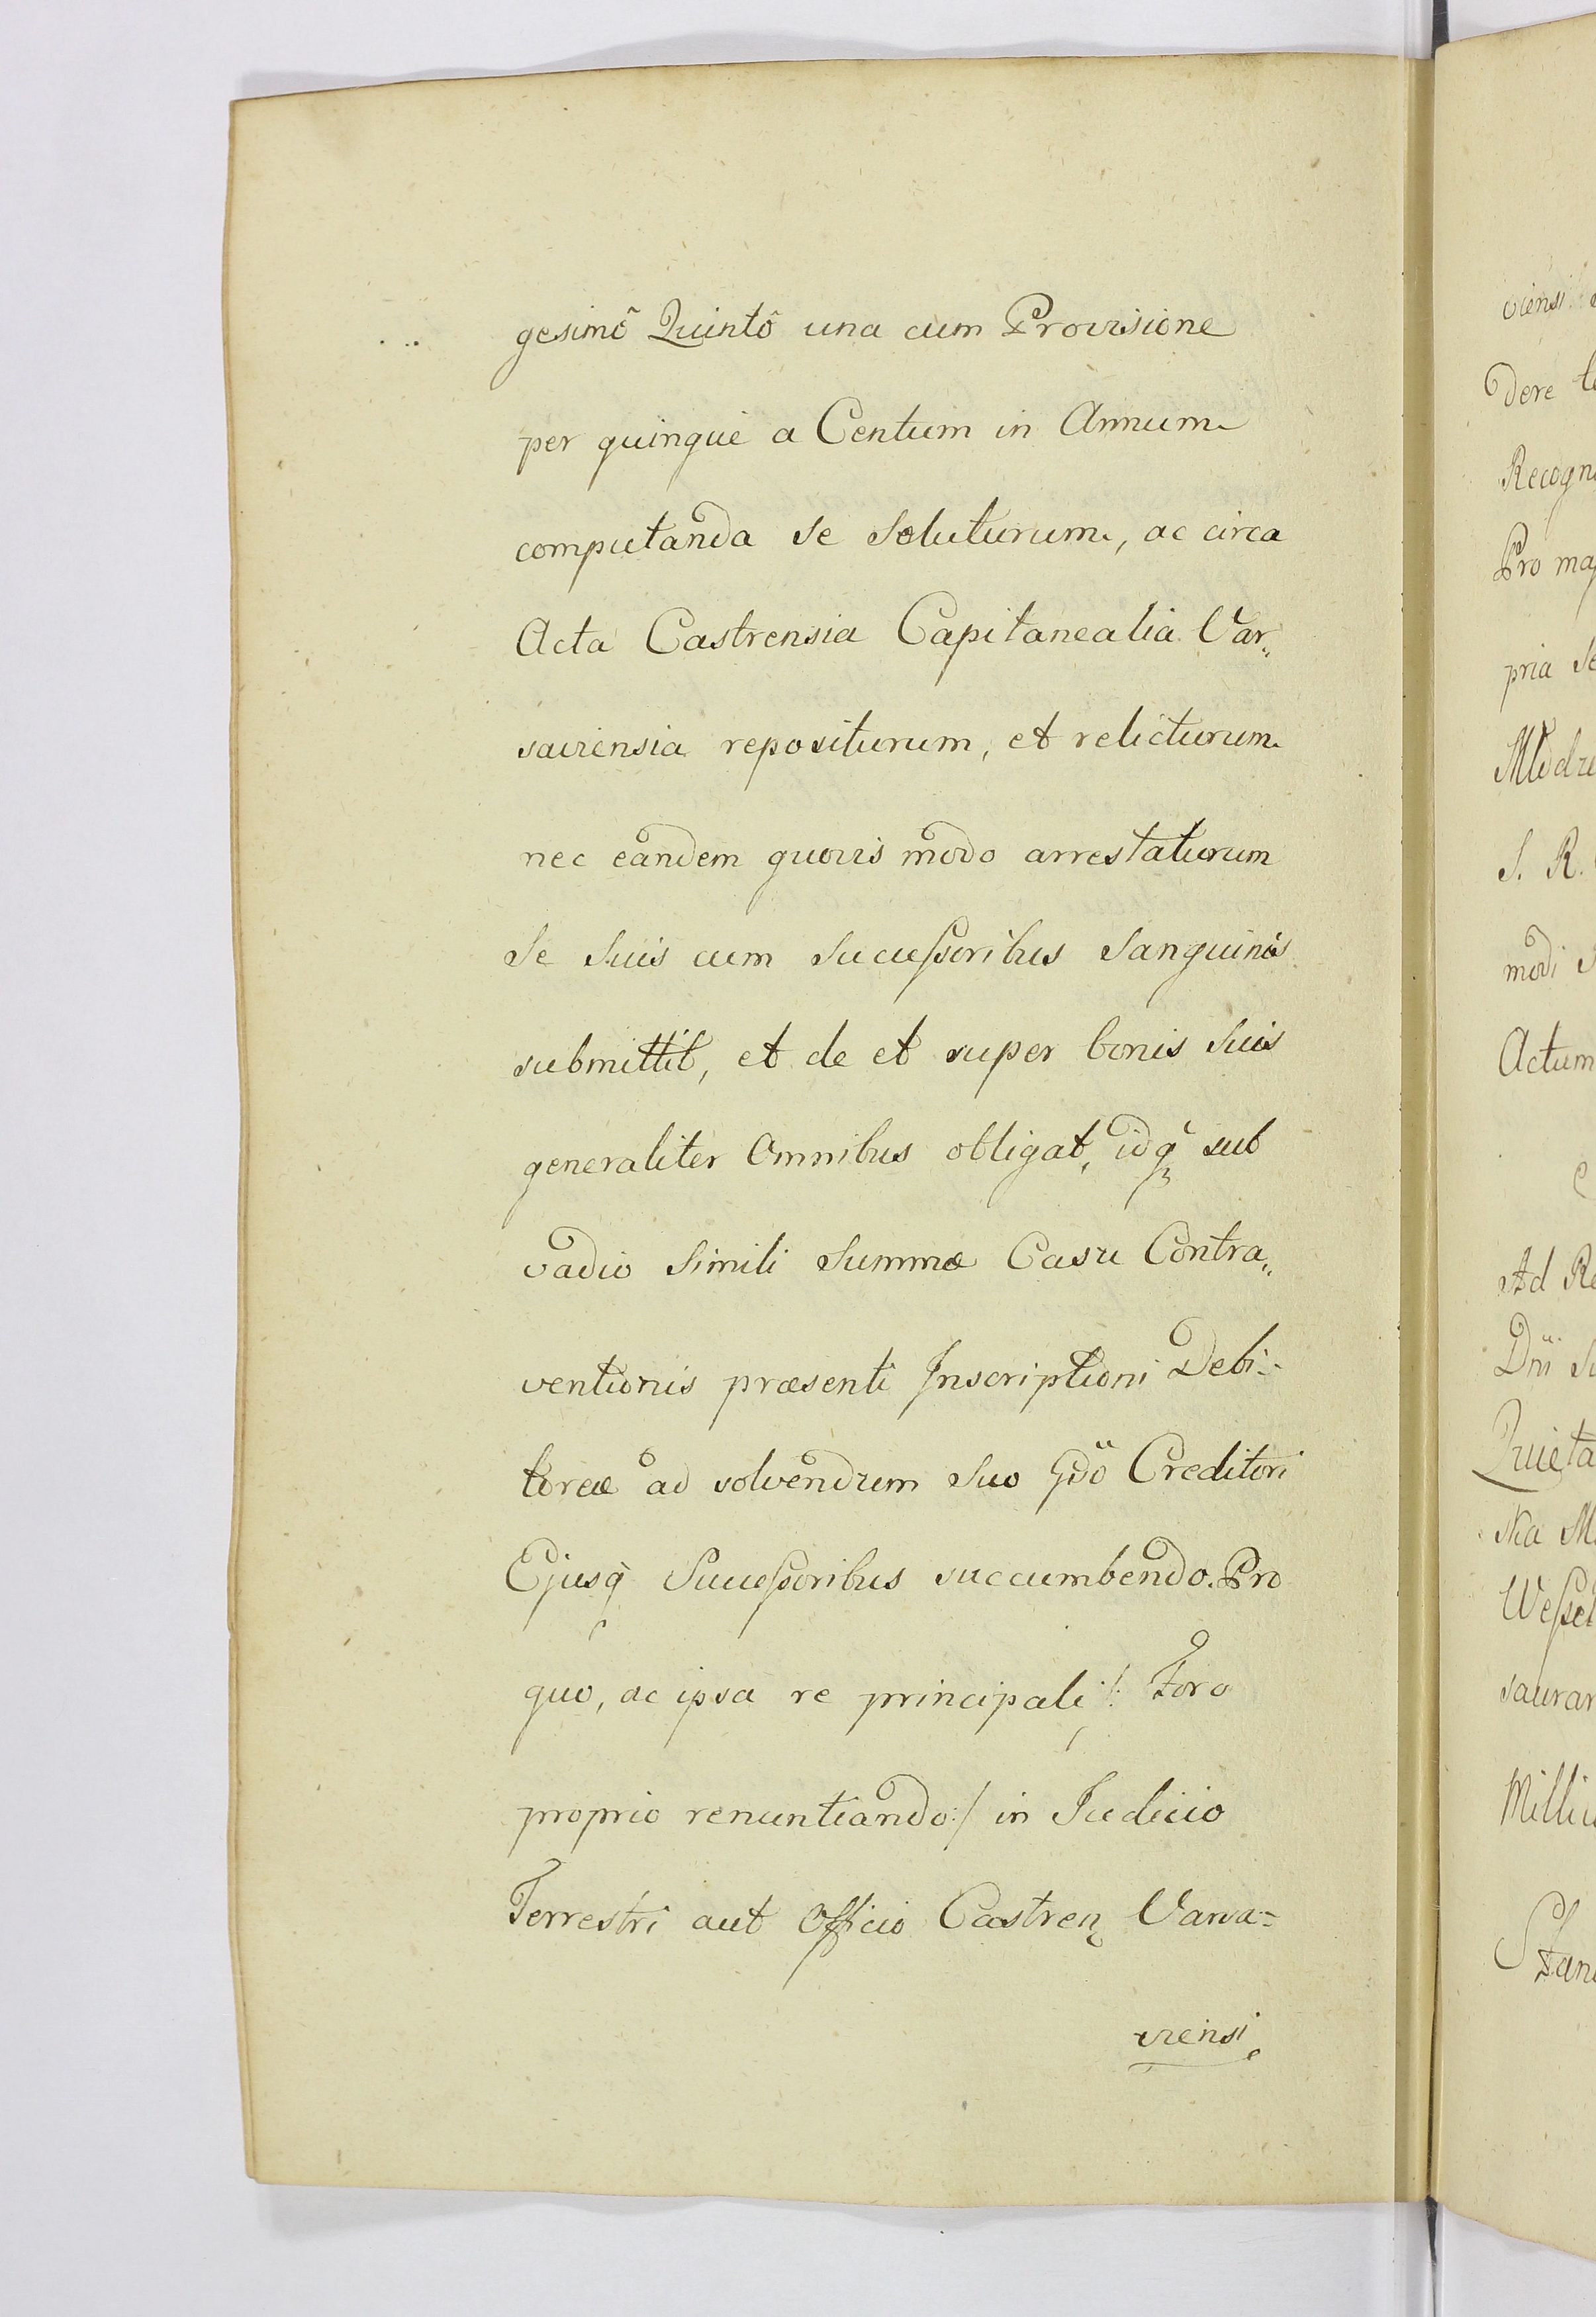 gesimô Quintô una cum Provisione
per quinque a Centum in Annum
computanda se soluturum, ac circa
Acta Castrensia Capitanealia Var„
saviensia repositurum, et relicturum
nec eandem quovis modo arrestaturum
se suis cum successoribus sanguinis
submittit, et de et super bonis suis
generaliter omnibus obligat, idq̃ sub
vadio simili summæ Casu Contra„
ventionis præsenti Inscriptioni Debi-
toreæ ad solvendum suo Creditori
Ejusq̀ Successoribus succumbendo. Pro
quo, ac ipsa re principali /: Foro
proprio renuntiando :/ in Iudicio
Terrestri aut Officio Castren Varsa=
viensi
viensi
dere
Recogn
Pro ma
pria se
Młodzi
S. R.
modi
Actum
Ad Re
Dni
Quieta
ska M
Wessel
saurar
Milli